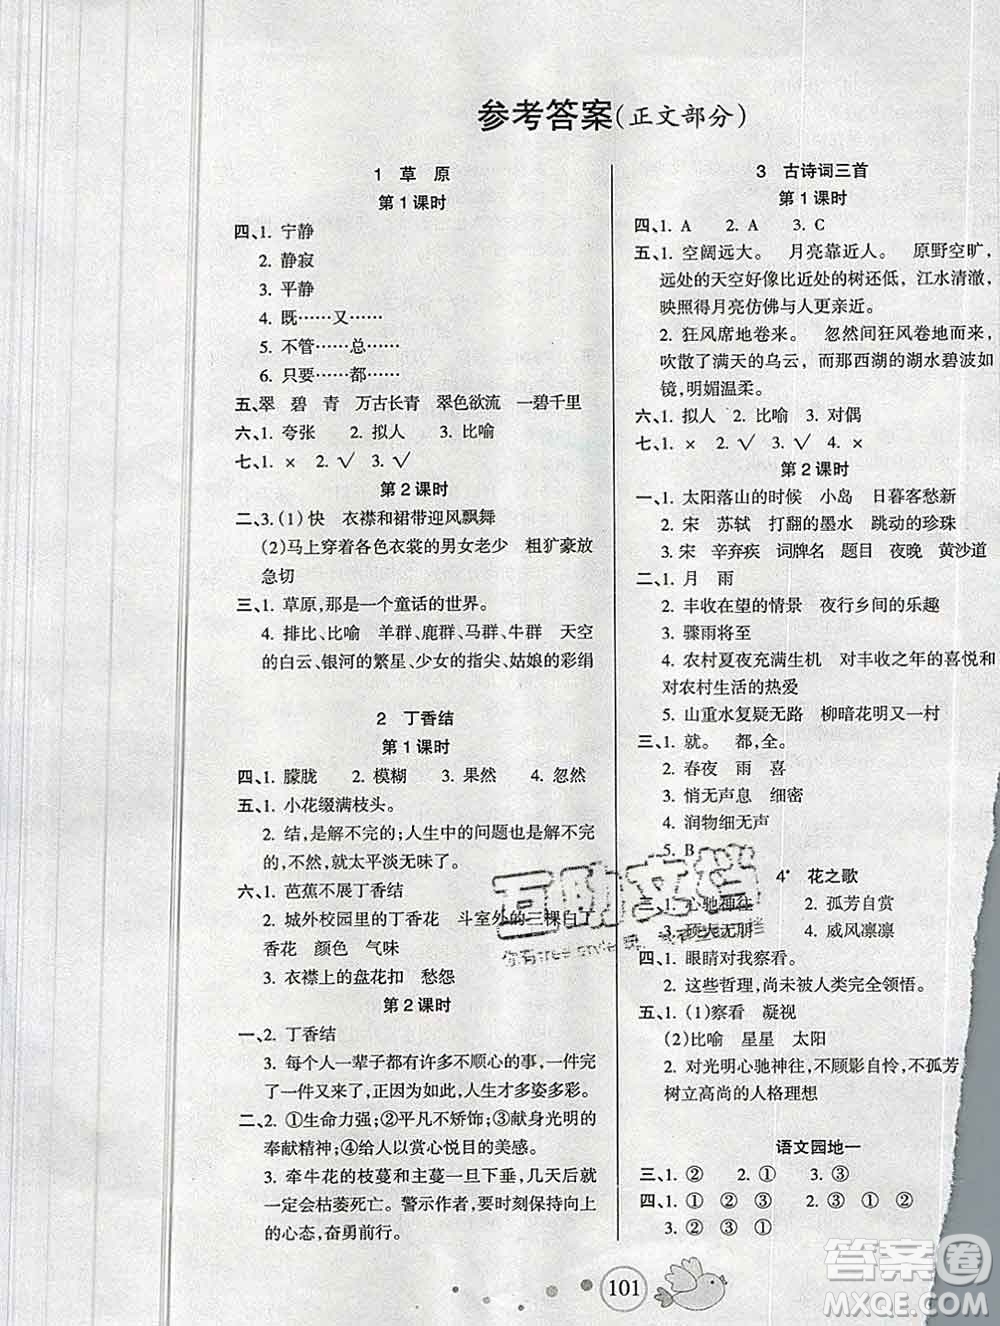 参考答案(正文部分)
1 草 原
第1课时
四、1. 宁静
2. 静寂
3. 平静
4. 既……又……
5. 不管……总……
6. 只要……都……
五、翠 碧 青 万古长青 翠色欲流 一碧千里
六、1. 夸张 2. 拟人 3. 比喻
七、1. × 2. √ 3. √
第2课时
二、3. (1)快 衣襟和裙带迎风飘舞
(2)马上穿着各色衣裳的男女老少 粗犷豪放
急切
三、1. 草原,那是一个童话的世界。
4. 排比、比喻 羊群、鹿群、马群、牛群 天空
的白云、银河的繁星、少女的指尖、姑娘的彩绢
2 丁香结
第1课时
四、1. 朦胧 2. 模糊 3. 果然 4. 忽然
五、1. 小花缀满枝头。
2. 结,是解不完的;人生中的问题也是解不完
的,不然,就太平淡无味了。
六、1. 芭蕉不展丁香结
2. 城外校园里的丁香花 斗室外的三棵白丁
香花 颜色 气味
3. 衣襟上的盘花扣 愁怨
第2课时
一、2. 丁香结
3. 每个人一辈子都有许多不顺心的事,一件完
了一件又来了,正因为如此,人生才多姿多彩。
二、2. ①生命力强;②平凡不矫饰;③献身光明的
奉献精神;④给人以赏心悦目的美感。
3. 牵牛花的枝蔓和主蔓一旦下垂,几天后就
一定会枯萎死亡。警示作者,要时刻保持向上
的心态,奋勇前行。
3 古诗词三首
第1课时
四、1. A 2. A 3. C
五、1. 空阔远大。 月亮靠近人。 原野空旷,
远处的天空好像比近处的树还低,江水清澈,
映照得月亮仿佛与人更亲近。
2. 狂风席地卷来。 忽然间狂风卷地而来,
吹散了满天的乌云,而那西湖的湖水碧波如
镜,明媚温柔。
六、1. 拟人 2. 比喻 3. 对偶
七、1. × 2. √ 3. √ 4. ×
第2课时
一、1. 太阳落山的时候 小岛 日暮客愁新
2. 宋 苏轼 打翻的墨水 跳动的珍珠
3. 宋 辛弃疾 词牌名 题目 夜晚 黄沙道
二、1. 月 雨
2. 丰收在望的情景 夜行乡间的乐趣
3. 骤雨将至
4. 农村夏夜充满生机 对丰收之年的喜悦和
对农村生活的热爱
5. 山重水复疑无路 柳暗花明又一村
三、1. 就。 都,全。
2. 春夜 雨 喜
3. 悄无声息 细密
4. 润物细无声
5. B
4* 花之歌
二、1. 心驰神往 2. 孤芳自赏
3. 硕大无朋 4. 威风凛凛
四、1. 眼睛对我察看。
2. 这些哲理,尚未被人类完全领悟。
五、1. (1)察看 凝视
(2)比喻 星星 太阳
2. 对光明心驰神往,不顾影自怜,不孤芳
树立高尚的人格理想
语文园地一
三、1. ② 2. ① 3. ③
四、1. ① ② ③ 2. ③ ① ②
3. ② ③ ①
101
互助文档
答案圈
MXQE.COM